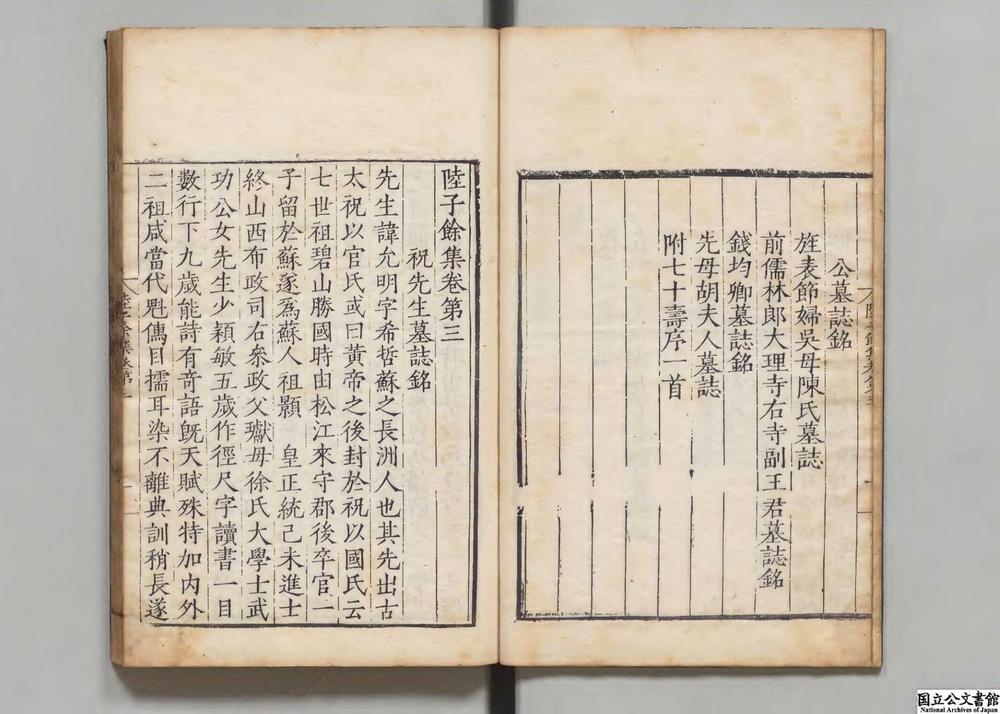 公墓誌銘
旌表節婦吳母陳氏墓誌
前儒林郎大理寺右寺副王君墓誌銘
錢均卿墓誌銘
先母胡夫人墓誌
附七十壽序一首
陸子餘集卷第三
祝先生墓誌銘
先生諱允明字希哲蘇之長洲人也其先出古
太祝以官氏或曰黃帝之後封於祝以國氏云
七世祖碧山勝國時由松江來守郡後卒官二
子留於蘇遂爲蘇人祖顥 皇正統己未進士
終山西布政司右叅政父瓛母徐氏大學士武
功公女先生少穎敏五歲作徑尺字讀書一目
數行下九歲能詩有竒語旣天賦殊特加內外
二祖咸當代魁儁目擩耳染不離典訓稍長遂
国立公文書館
National Archives of Japan